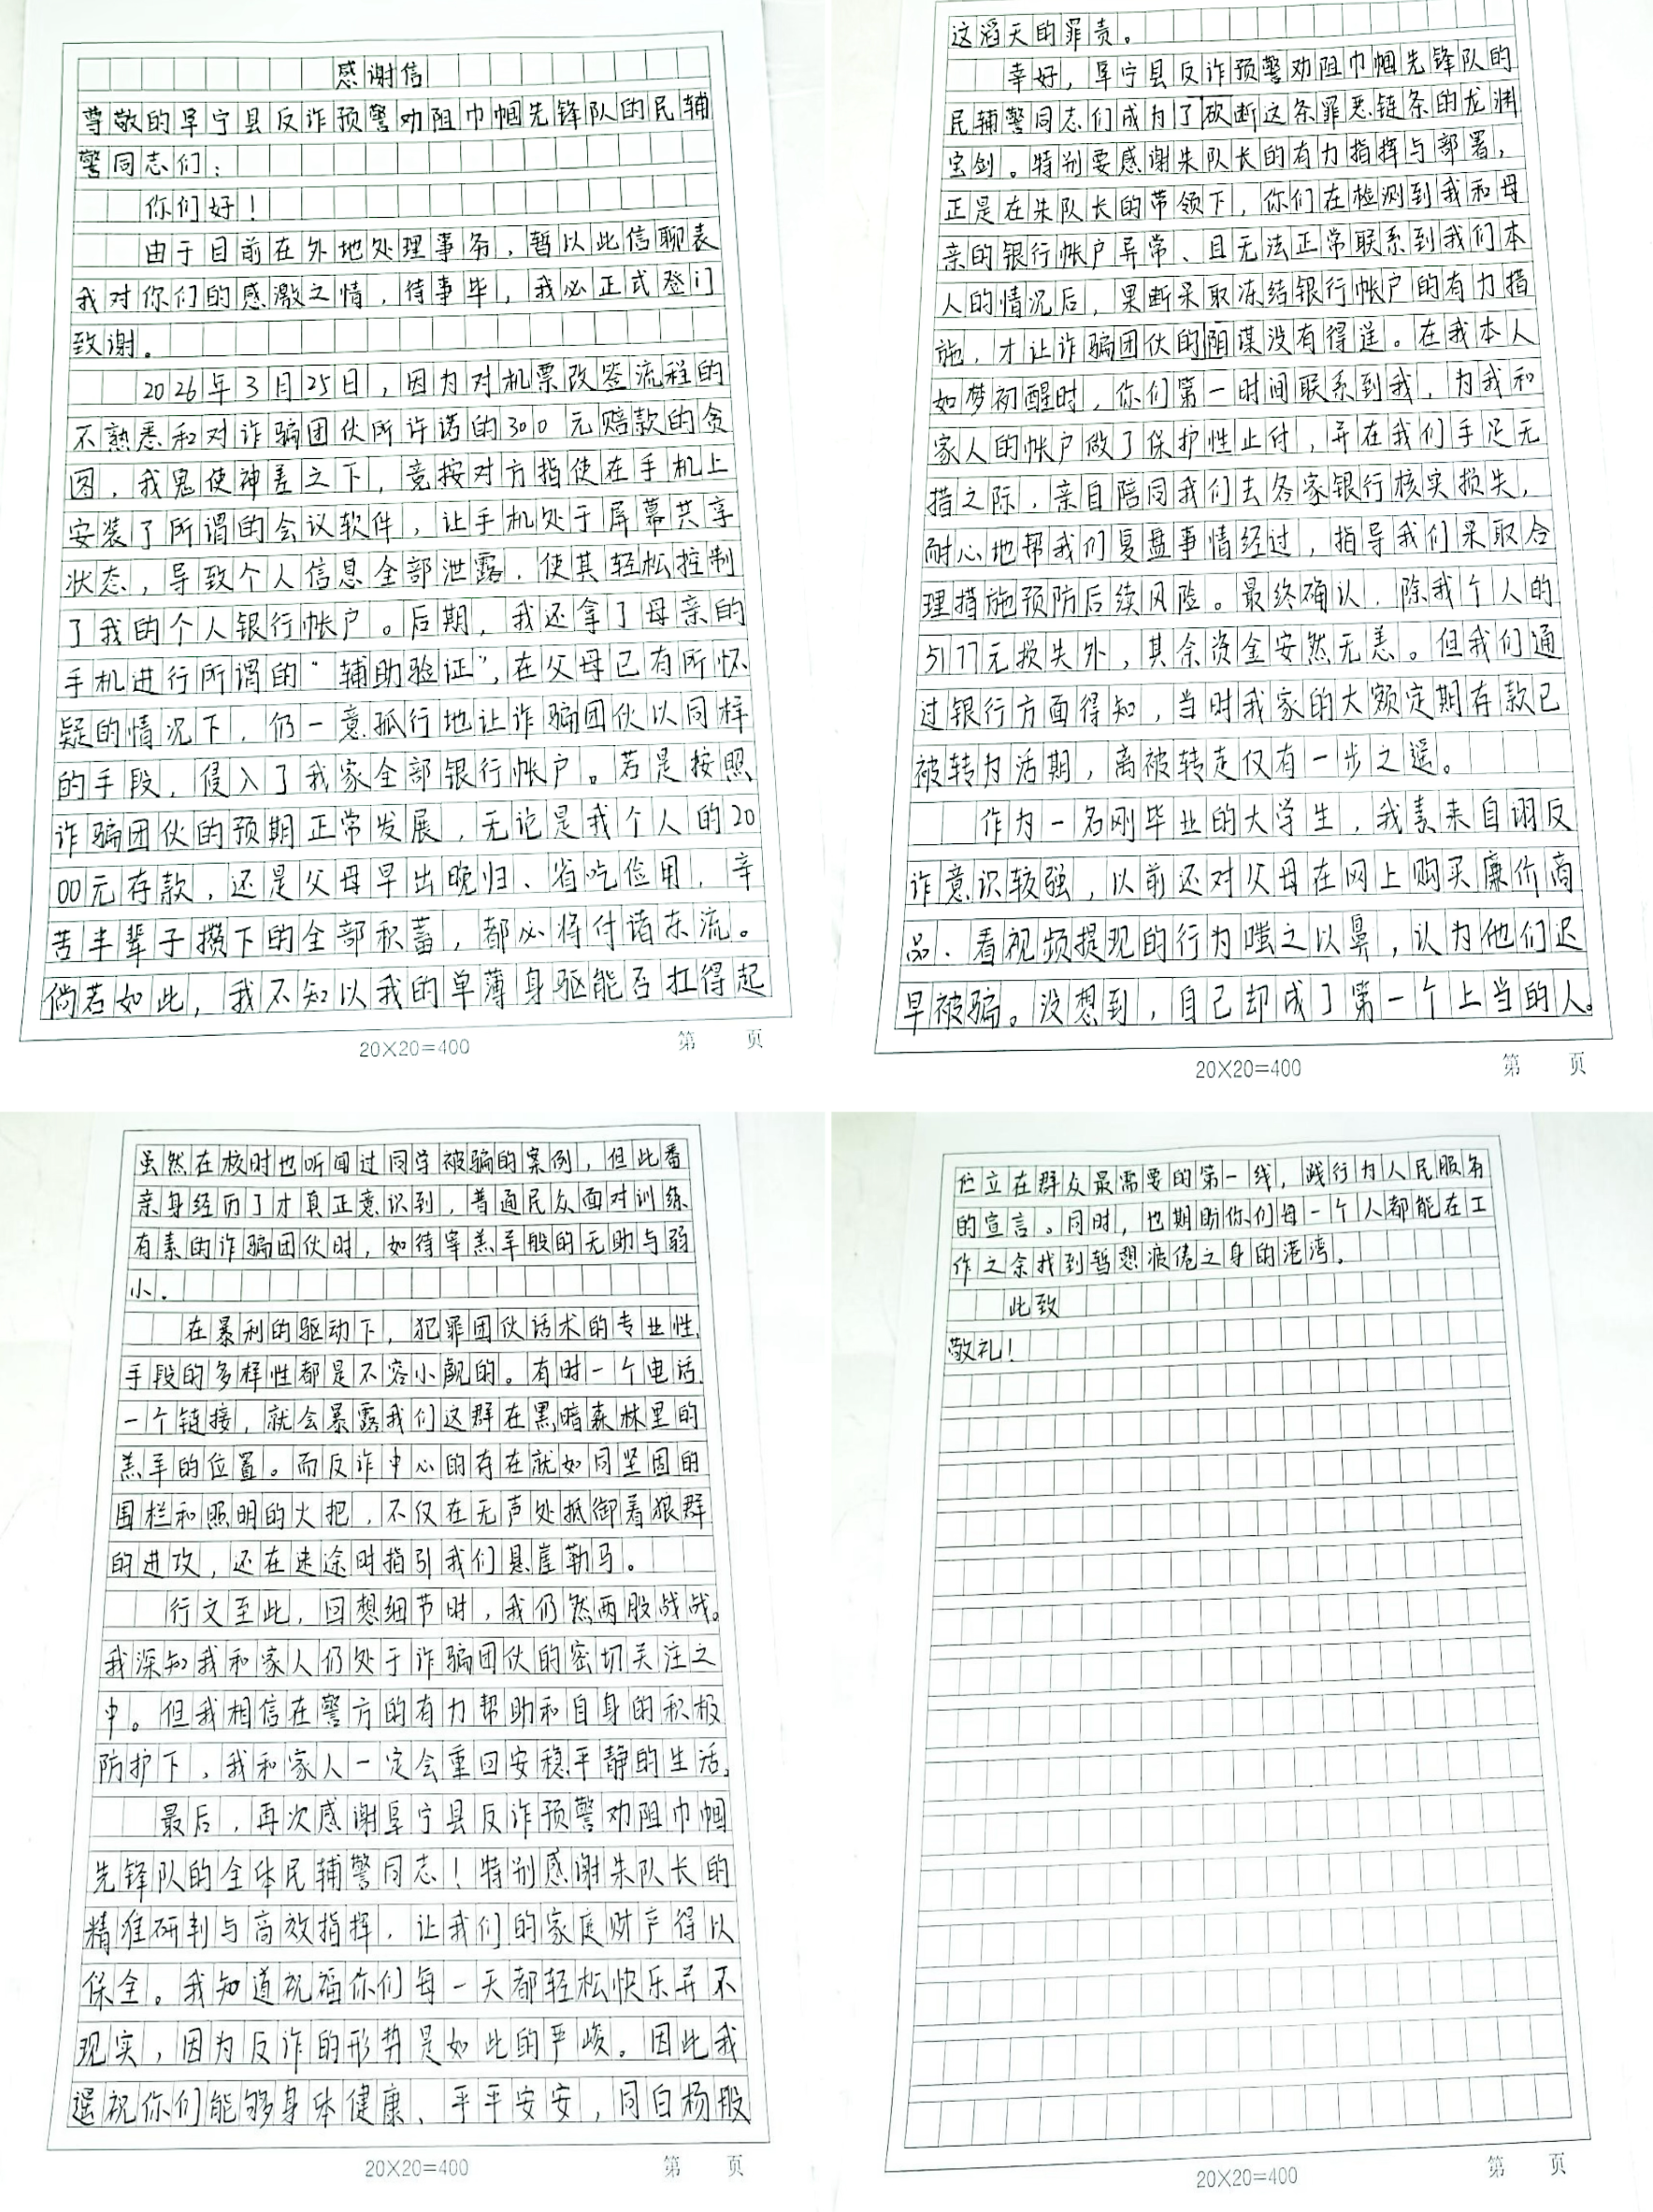 感谢信
尊敬的阜宁县反诈预警劝阻巾帼先锋队的民辅
警同志们：
你们好！
由于目前在外地处理事务，暂以此信聊表
我对你们的感激之情，待事毕，我必正式登门
致谢。
2026年3月25日，因为对机票改签流程的
不熟悉和对诈骗团伙所许诺的300元赔款的贪
图，我鬼使神差之下，竟按对方指使在手机上
安装了所谓的会议软件，让手机处于屏幕共享
状态，导致个人信息全部泄露，使其轻松控制
了我的个人银行帐户。后期，我还拿了母亲的
手机进行所谓的“辅助验证”，在父母已有所怀
疑的情况下，仍一意孤行地让诈骗团伙以同样
的手段，侵入了我家全部银行帐户。若是按照
诈骗团伙的预期正常发展，无论是我个人的20
00元存款，还是父母早出晚归、省吃俭用，辛
苦半辈子攒下的全部积蓄，都必将付诸东流。
倘若如此，我不知以我的单薄身驱能否扛得起
20×20=400
第 页
这滔天的罪责。
幸好，阜宁县反诈预警劝阻巾帼先锋队的
民辅警同志们成为了砍断这条罪恶链条的龙渊
宝剑。特别要感谢朱队长的有力指挥与部署，
正是在朱队长的带领下，你们在检测到我和母
亲的银行帐户异常、且无法正常联系到我们本
人的情况后，果断采取冻结银行帐户的有力措
施，才让诈骗团伙的阴谋没有得逞。在我本人
如梦初醒时，你们第一时间联系到我，为我和
家人的帐户做了保护性止付，并在我们手足无
措之际，亲自陪同我们去各家银行核实损失，
耐心地帮我们复盘事情经过，指导我们采取合
理措施预防后续风险。最终确认，除我个人的
5177元损失外，其余资金安然无恙。但我们通
过银行方面得知，当时我家的大额定期存款已
被转为活期，离被转走仅有一步之遥。
作为一名刚毕业的大学生，我素来自诩反
诈意识较强，以前还对父母在网上购买廉价商
品、看视频提现的行为嗤之以鼻，认为他们迟
早被骗。没想到，自己却成了第一个上当的人。
20×20=400
第 页
虽然在校时也听闻过同学被骗的案例，但此番
亲身经历了才真正意识到，普通民众面对训练
有素的诈骗团伙时，如待宰羔羊般的无助与弱
小。
在暴利的驱动下，犯罪团伙话术的专业性，
手段的多样性都是不容小觑的。有时一个电话，
一个链接，就会暴露我们这群在黑暗森林里的
羔羊的位置。而反诈中心的存在就如同坚固的
围栏和照明的火把，不仅在无声处抵御着狼群
的进攻，还在迷途时指引我们悬崖勒马。
行文至此，回想细节时，我仍然两股战战。
我深知我和家人仍处于诈骗团伙的密切关注之
中。但我相信在警方的有力帮助和自身的积极
防护下，我和家人一定会重回安稳平静的生活。
最后，再次感谢阜宁县反诈预警劝阻巾帼
先锋队的全体民辅警同志！特别感谢朱队长的
精准研判与高效指挥，让我们的家庭财产得以
保全。我知道祝福你们每一天都轻松快乐并不
现实，因为反诈的形势是如此的严峻。因此我
遥祝你们能够身体健康、平平安安，同白杨般
20×20=400
第 页
伫立在群众最需要的第一线，践行为人民服务
的宣言。同时，也期盼你们每一个人都能在工
作之余找到暂憩疲倦之身的港湾。
此致
敬礼！
20×20=400
第 页